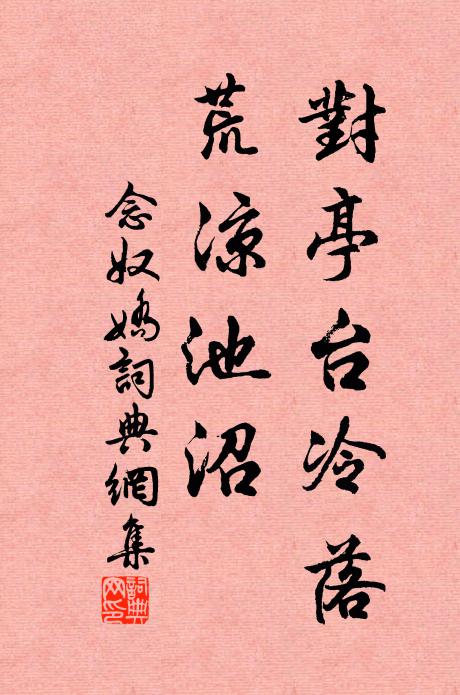 對亭台冷落
荒凉池沼
念奴嬌詞典網集
詞典网印